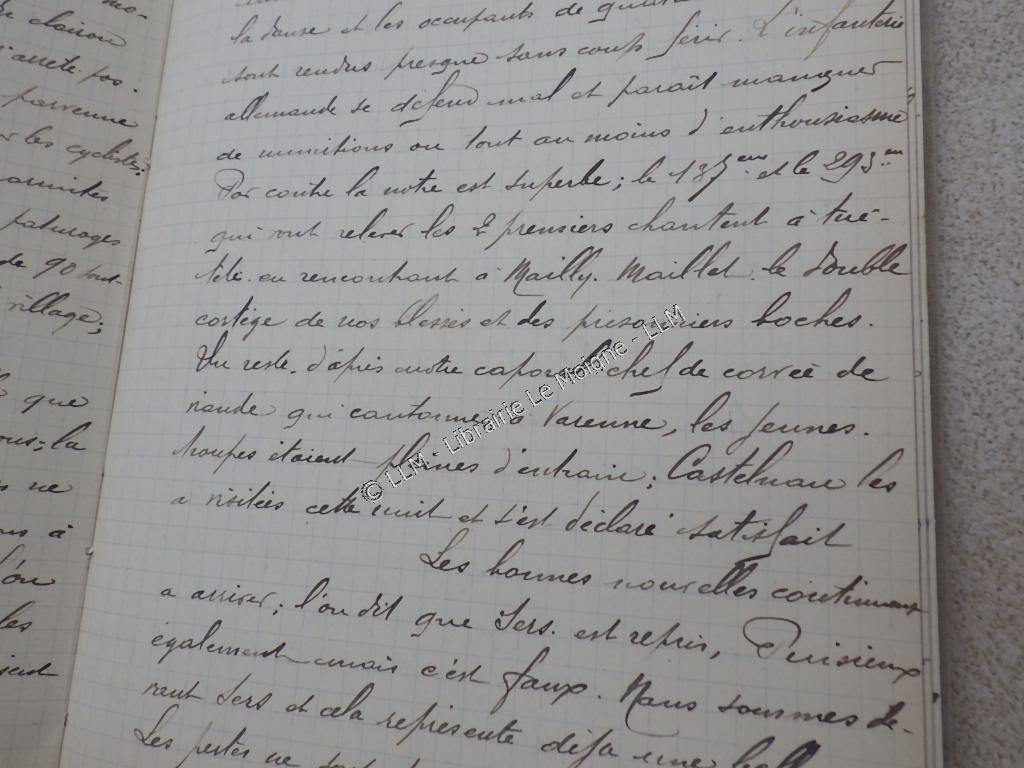 mo-
clairon
arrete. pos.
parvenue
les cycliste:
paturages
de 90
village;
que
nous, la
ne
à
l'on
les
la danse et les occupants de
sont rendus presque sans coup férir. L'infanterie
allemande se défend mal et parait manquer
de munitions ou tout au moins d'enthousiasme
Par contre la notre est superbe; le 137eme et le 293eme
qui vont relever les 2 premiers chantent à tue-
tête en rencontrant à Mailly. Maillet le double
cortège de nos blessés et des prisonniers boches.
Du reste. d'après notre caporal chef de corvée de
viande qui cantonne à Varenne, les jeunes.
troupes étaient pleines d'entrain; Castelnau les
a visitées cette nuit et s'est déclaré satisfait
Les bonnes nouvelles continuent
a arriver; l'on dit que Sers. est repris, Puisieux
également mais c'est faux. Nous sommes de-
vant Sers et cela représente déja une
Les pertes ne
© LLM - Librairie Le Moione - LLM